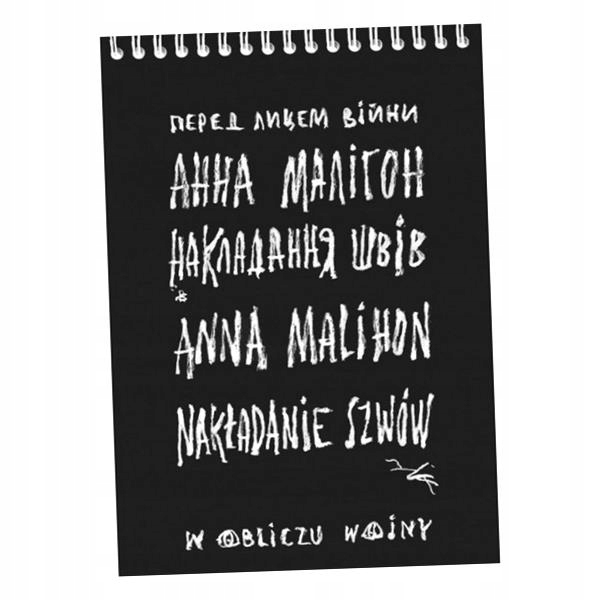 ПЕРЕД ЛИЦЕМ ВІЙНИ
АННА МАЛІГОН
НАКЛАДАННЯ ШВІВ
ANNA MALIHON
NAKŁADANIE SZWÓW
W OBLICZU WOJNY